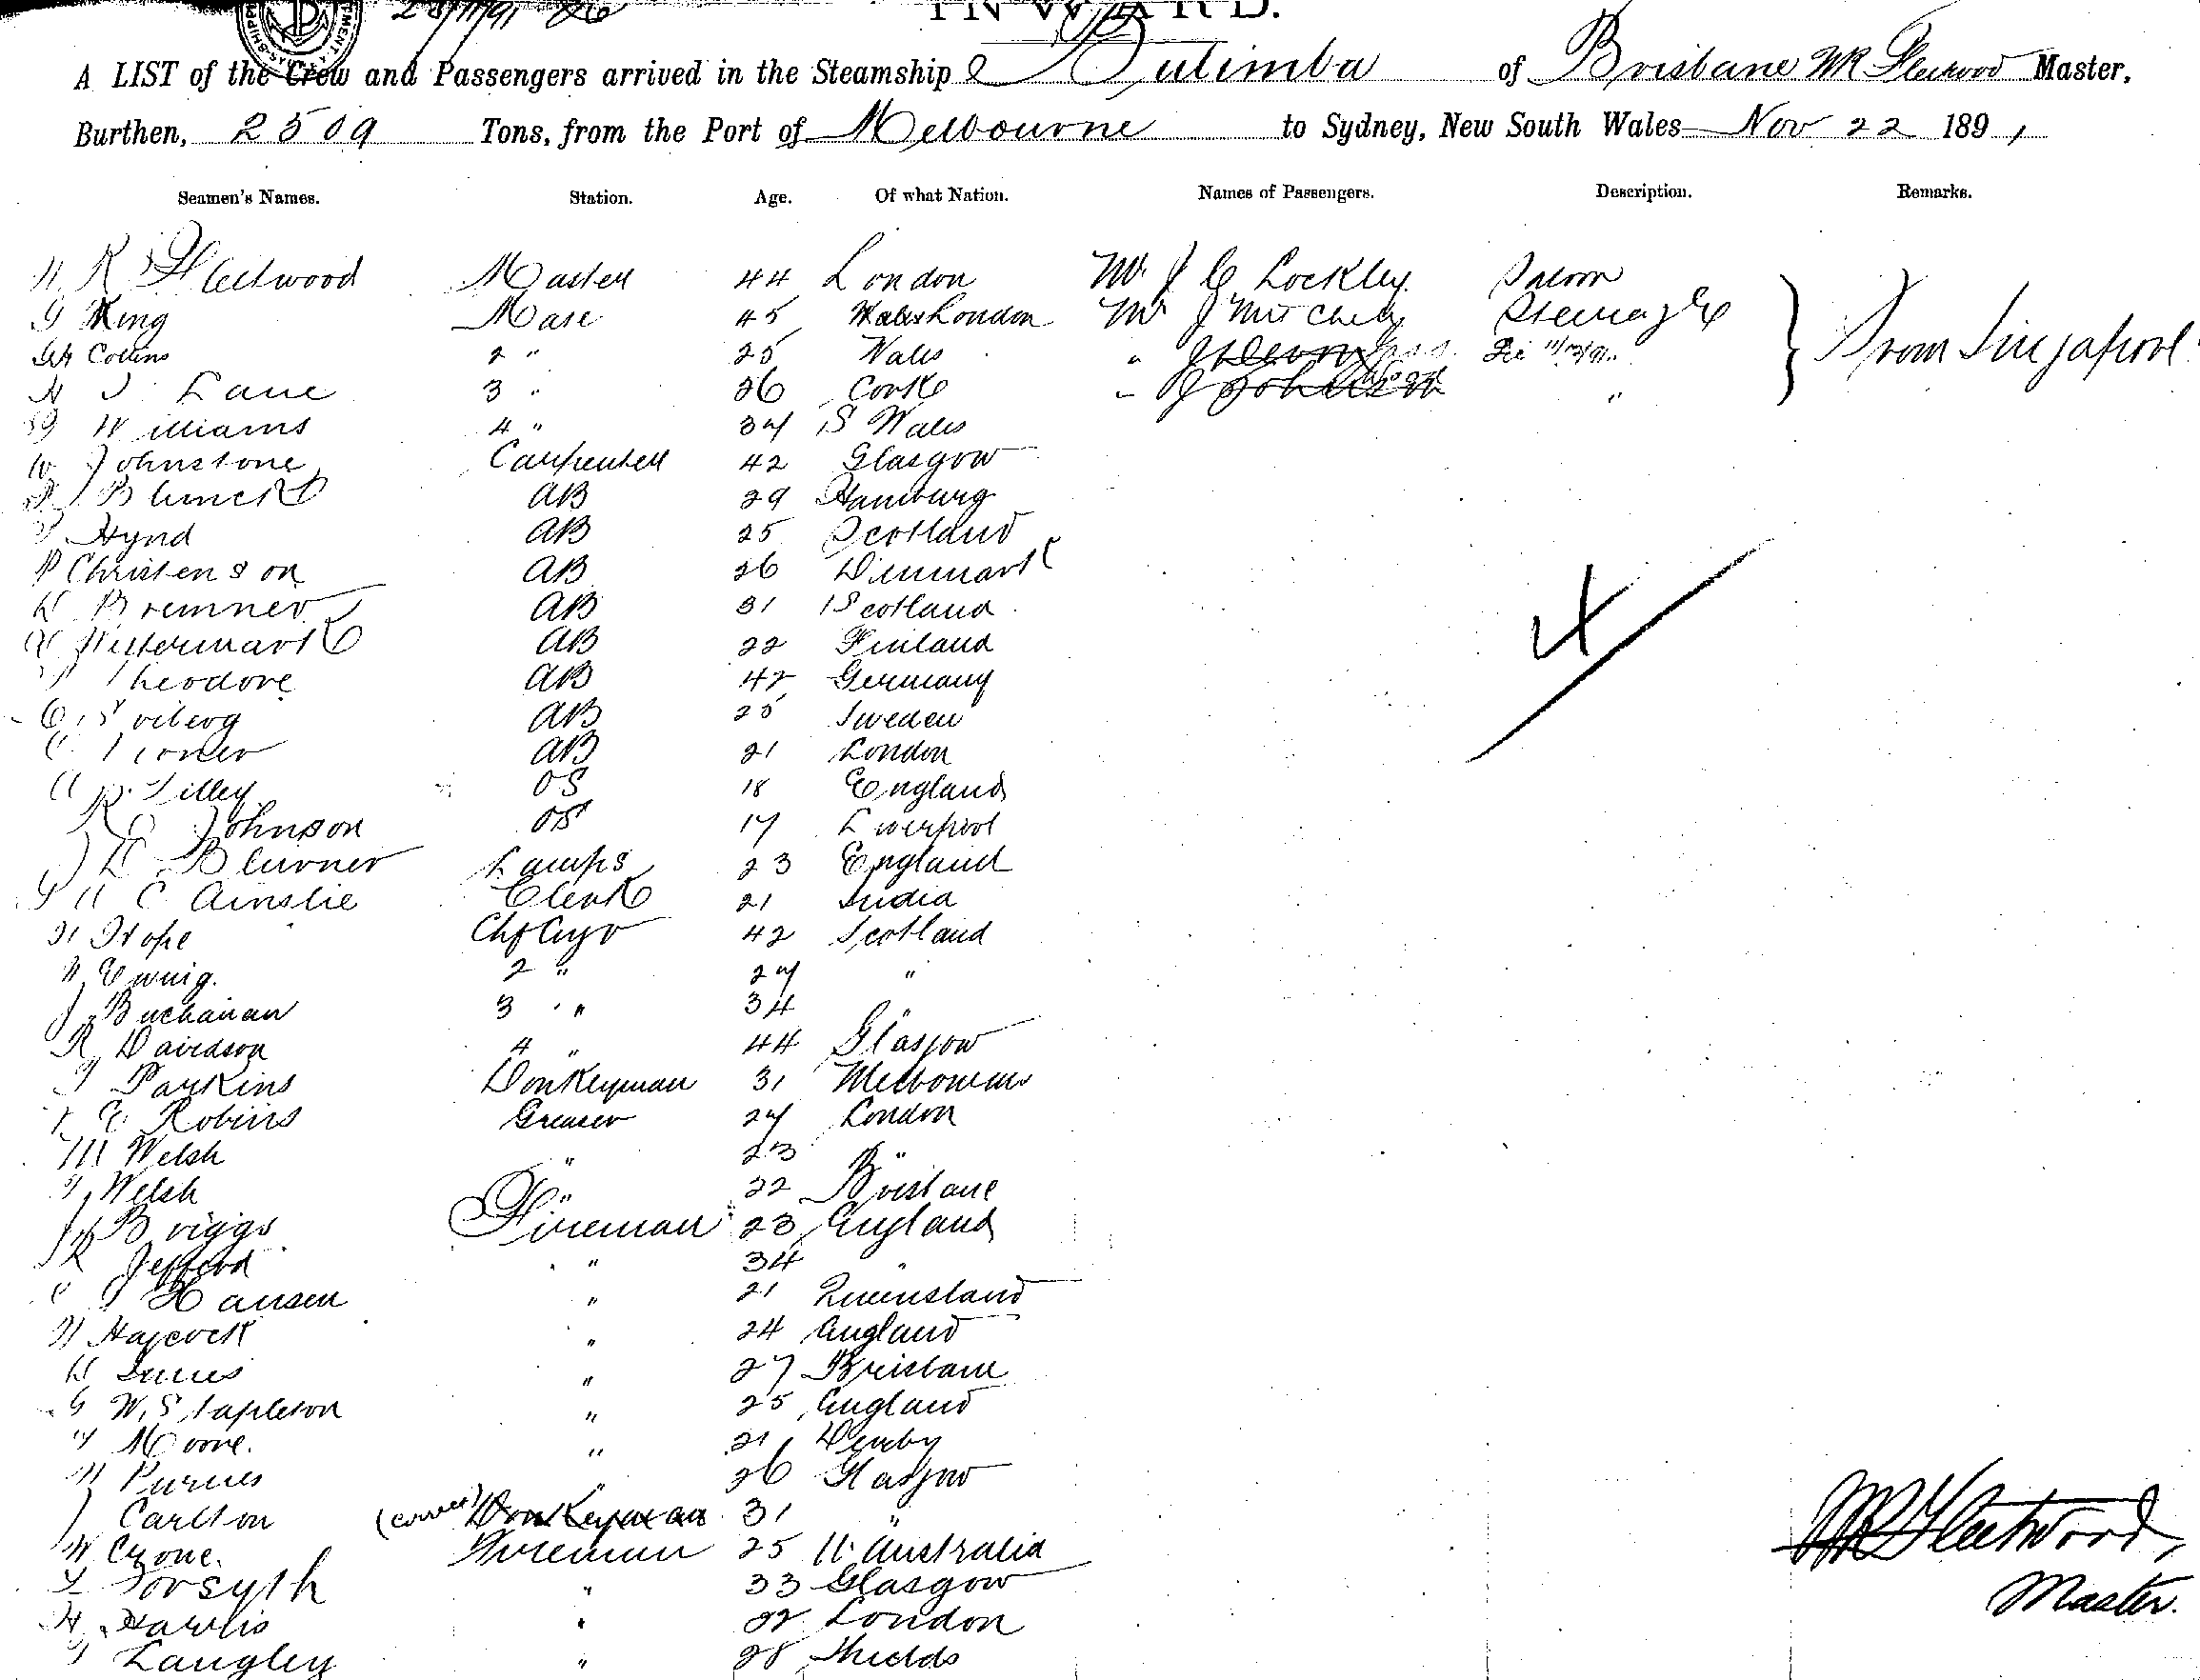 INWARD.
A LIST of the Crew and Passengers arrived in the Steamship Bulimba of Brisbane WR Fleetwood Master,
Burthen, 2509 Tons, from the Port of Melbourne to Sydney, New South Wales Nov 22 1891
Seamen's Names. Station. Age. Of what Nation. Names of Passengers. Description. Remarks.
W. R Fleetwood Master 44 London Mr J C Lockley. Saloon
G King Mate 45 London Mr J Mitchely Steerage
Collins 2 " 25 Wales "
H J. Lane 3 " 26 Cork " " From Singapore
Williams 4 " 34 S Wales
W Johnstone Carpenter 42 Glasgow
AB 29 Hamburg
Hynd AB 25 Scotland
P Christenson AB 26 Dinmark
W Bremner AB 31 Scotland
Westermark AB 22 Finland
Theodore AB 42 Germany
AB 25 Sweden
AB 21 London
Tilley OS 18 England
R C Johnson OS 17 Liverpool
Lamps 23 England
C Ainslie Clerk 21 India
Hope Chf Engr 42 Scotland
Ewing. 2 " 27 "
J Buchanan 3 " 34 "
R Davidson 4 " 44 Glasgow
Parkins Donkeyman 31 Melbourne
E Robins Greaser 27 London
M Welsh " 23 "
Welsh " 22 Brisbane
Briggs Fireman 23 England
Jefford " 34 "
Hansen " 21 Queensland
Haycock " 24 England
Innes " 27 Brisbane
G W. Stapleton " 25 England
Moore. " 21 Derby
Purves " 26 Glasgow
J Carlton (correct) Donkeyman 31 "
W Crone. Fireman 25 Australia
Forsyth " 33 Glasgow
H Harris " 22 London
Langley " 28 Shields
WR Fleetwood,
Master.